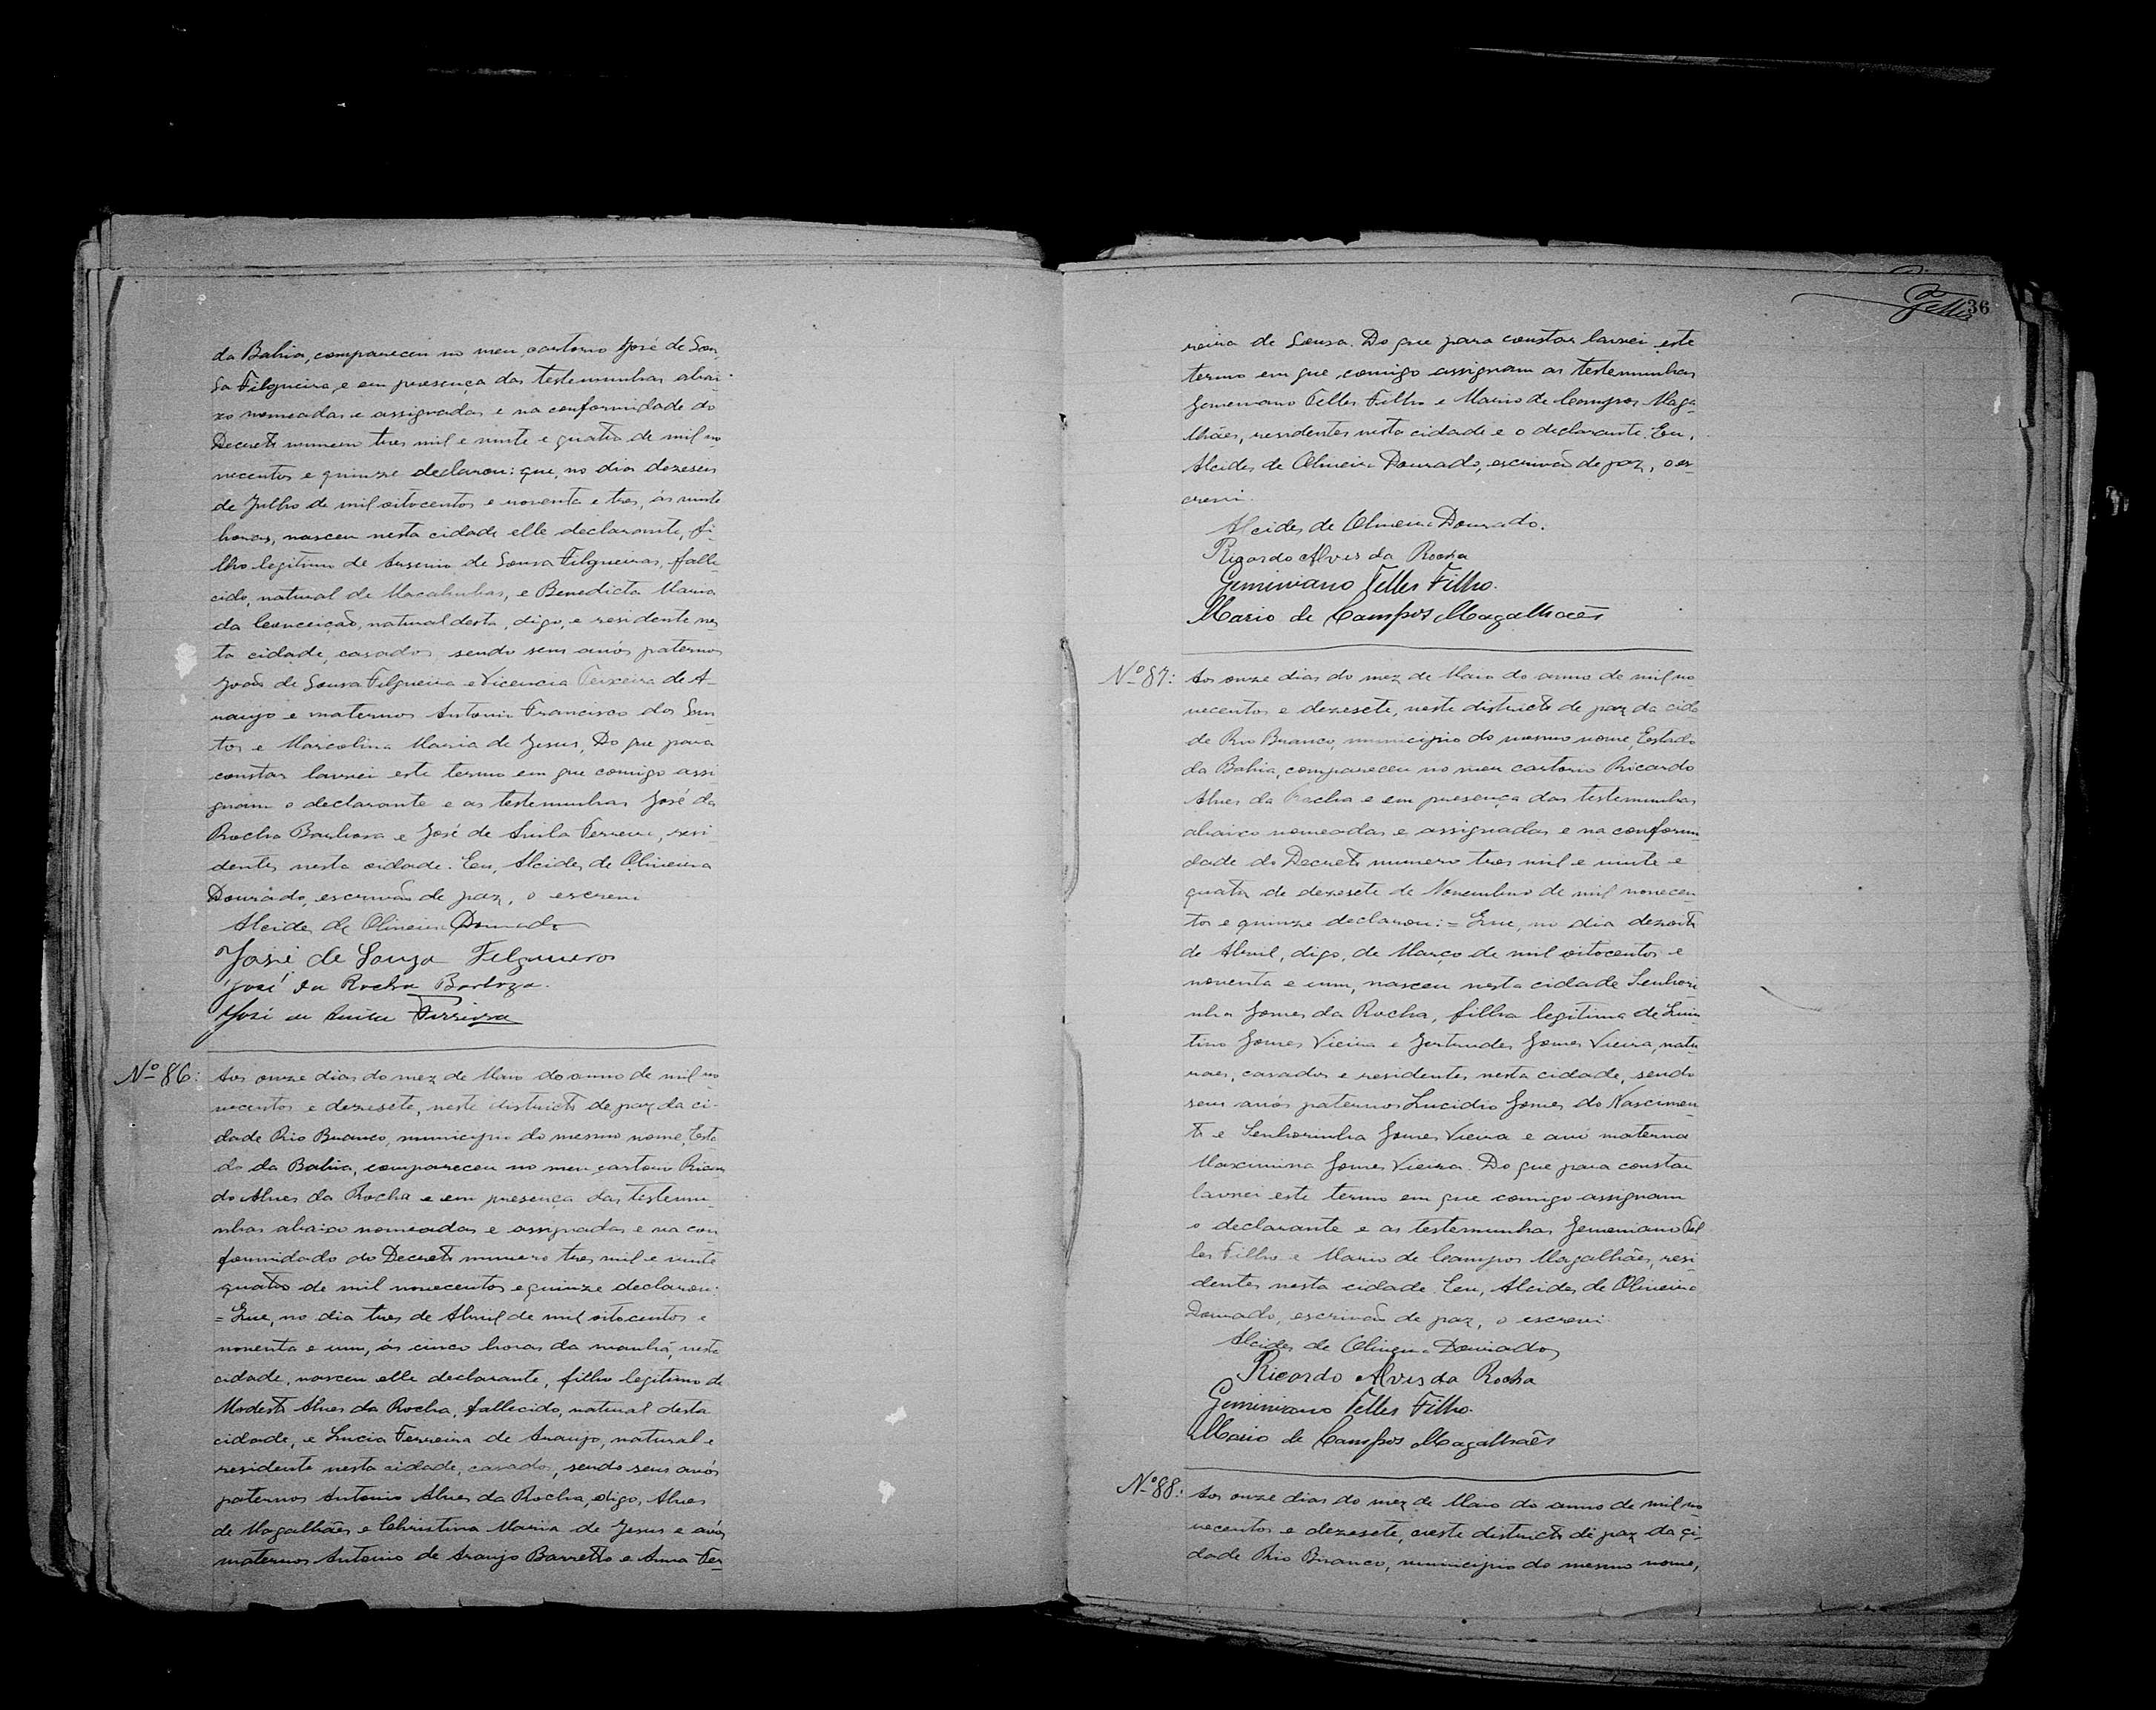 da Bahia, compareceu no meu cartorio José de Sou-
sa Filgueira, e em presença das testemunhas abai-
xo nomeadas e assignadas e na conformidade do
Decreto numero tres mil e vinte e quatro de mil no
vecentos e quinze declarou: que, no dia dezeseis
de Julho de mil oitocentos e noventa e tres, ás vinte
horas, nasceu nesta cidade elle declarante, fi-
lho legitimo de Arsenio de Sousa Filgueiras, falle
cido, natural de Macahubas, e Benedicta Maria
da Conceição, natural desta, digo, e residente nes
ta cidade, casados, sendo seus avós paternos
João de Sousa Filgueira e Vicencia Teixeira de A-
raujo e maternos Antonio Francisco dos San
tos e Marcolina Maria de Jesus. Do que para
constar lavrei este termo em que comigo assi
gnam o declarante e as testemunhas José da
Rocha Barbosa e José de Ferreira, resi
dentes nesta cidade. Eu, Alcides de Oliveira
Dourado, escrivão de paz, o escrevi
Alcides de Oliveira Dourado
José de Souza Felgueiros
José da Rocha Barboza.
José de Ferreira
Nº 86: Aos onze dias do mez de Maio do anno de mil no
vecentos e dezesete, neste districto de paz da ci-
dade Rio Branco, municipio do mesmo nome, Esta
do da Bahia, compareceu no meu cartorio Ricar
do Alves da Rocha e em presença das testemu-
nhas abaixo nomeadas e assignadas e na con
formidade do Decreto numero tres mil e vinte
quatro de mil novecentos e quinze declarou:
= Que, no dia tres de Abril de mil oitocentos e
noventa e um, ás cinco horas da manhã, nesta
cidade, nasceu elle declarante, filho legitimo de
Modesto Alves da Rocha, fallecido, natural desta
cidade, e Lucia Ferreira de Araujo, natural e
residente nesta cidade, casados, sendo seus avós
paternos Antonio Alves da Rocha, digo, Alves
de Magalhães e Christina Maria de Jesus e avós
maternos Antonio de Araujo Barretto e Anna Fer-
36
reira de Sousa. Do que para constar lavrei este
termo em que comigo assignam as testemunhas
Gemeniano Telles Filho e Mario de Campos Maga-
lhães, residentes nesta cidade e o declarante. Eu,
Alcides de Oliveira Dourado, escrivão de paz, o es-
crevi.
Alcides de Oliveira Dourado.
Ricardo Alves da Rocha
Geminiano Telles Filho.
Mario de Campos Magalhaẽs
Nº 87: Aos onze dias do mez de Maio do anno de mil no
vecentos e dezesete, neste districto de paz da cida
de Rio Branco, municipio do mesmo nome, Estado
da Bahia, compareceu no meu cartorio Ricardo
Alves da Rocha e em presença das testemunhas
abaixo nomeadas e assignadas e na conformi
dade do Decreto numero tres mil e vinte e
quatro de dezesete de Novembro de mil novecen
tos e quinze declarou: = Que, no dia dezoito
de Abril, digo, de Março de mil oitocentos e
noventa e um, nasceu nesta cidade Senhori
nha Gomes da Rocha, filha legitima de Quin
tino Gomes Vieira e Gertrudes Gomes Vieira, natu
raes, casados e residentes nesta cidade, sendo
seus avós paternos Lucidio Gomes do Nascimen
to e Senhorinha Gomes Vieira e avó materna
Maximina Gomes Vieira. Do que para constar
lavrei este termo em que comigo assignam
o declarante e as testemunhas Gemeniano Tel
les Filho e Mario de Campos Magalhães, resi-
dentes nesta cidade. Eu, Alcides de Oliveira
Dourado, escrivão de paz, o escrevi.
Alcides de Oliveira Dourado
Ricardo Alves da Rocha
Geminiano Telles Filho.
Mario de Campos Magalhaẽs
Nº 88: Aos onze dias do mez de Maio do anno de mil no
vecentos e dezesete, neste districto de paz da ci-
dade Rio Branco, municipio do mesmo nome,